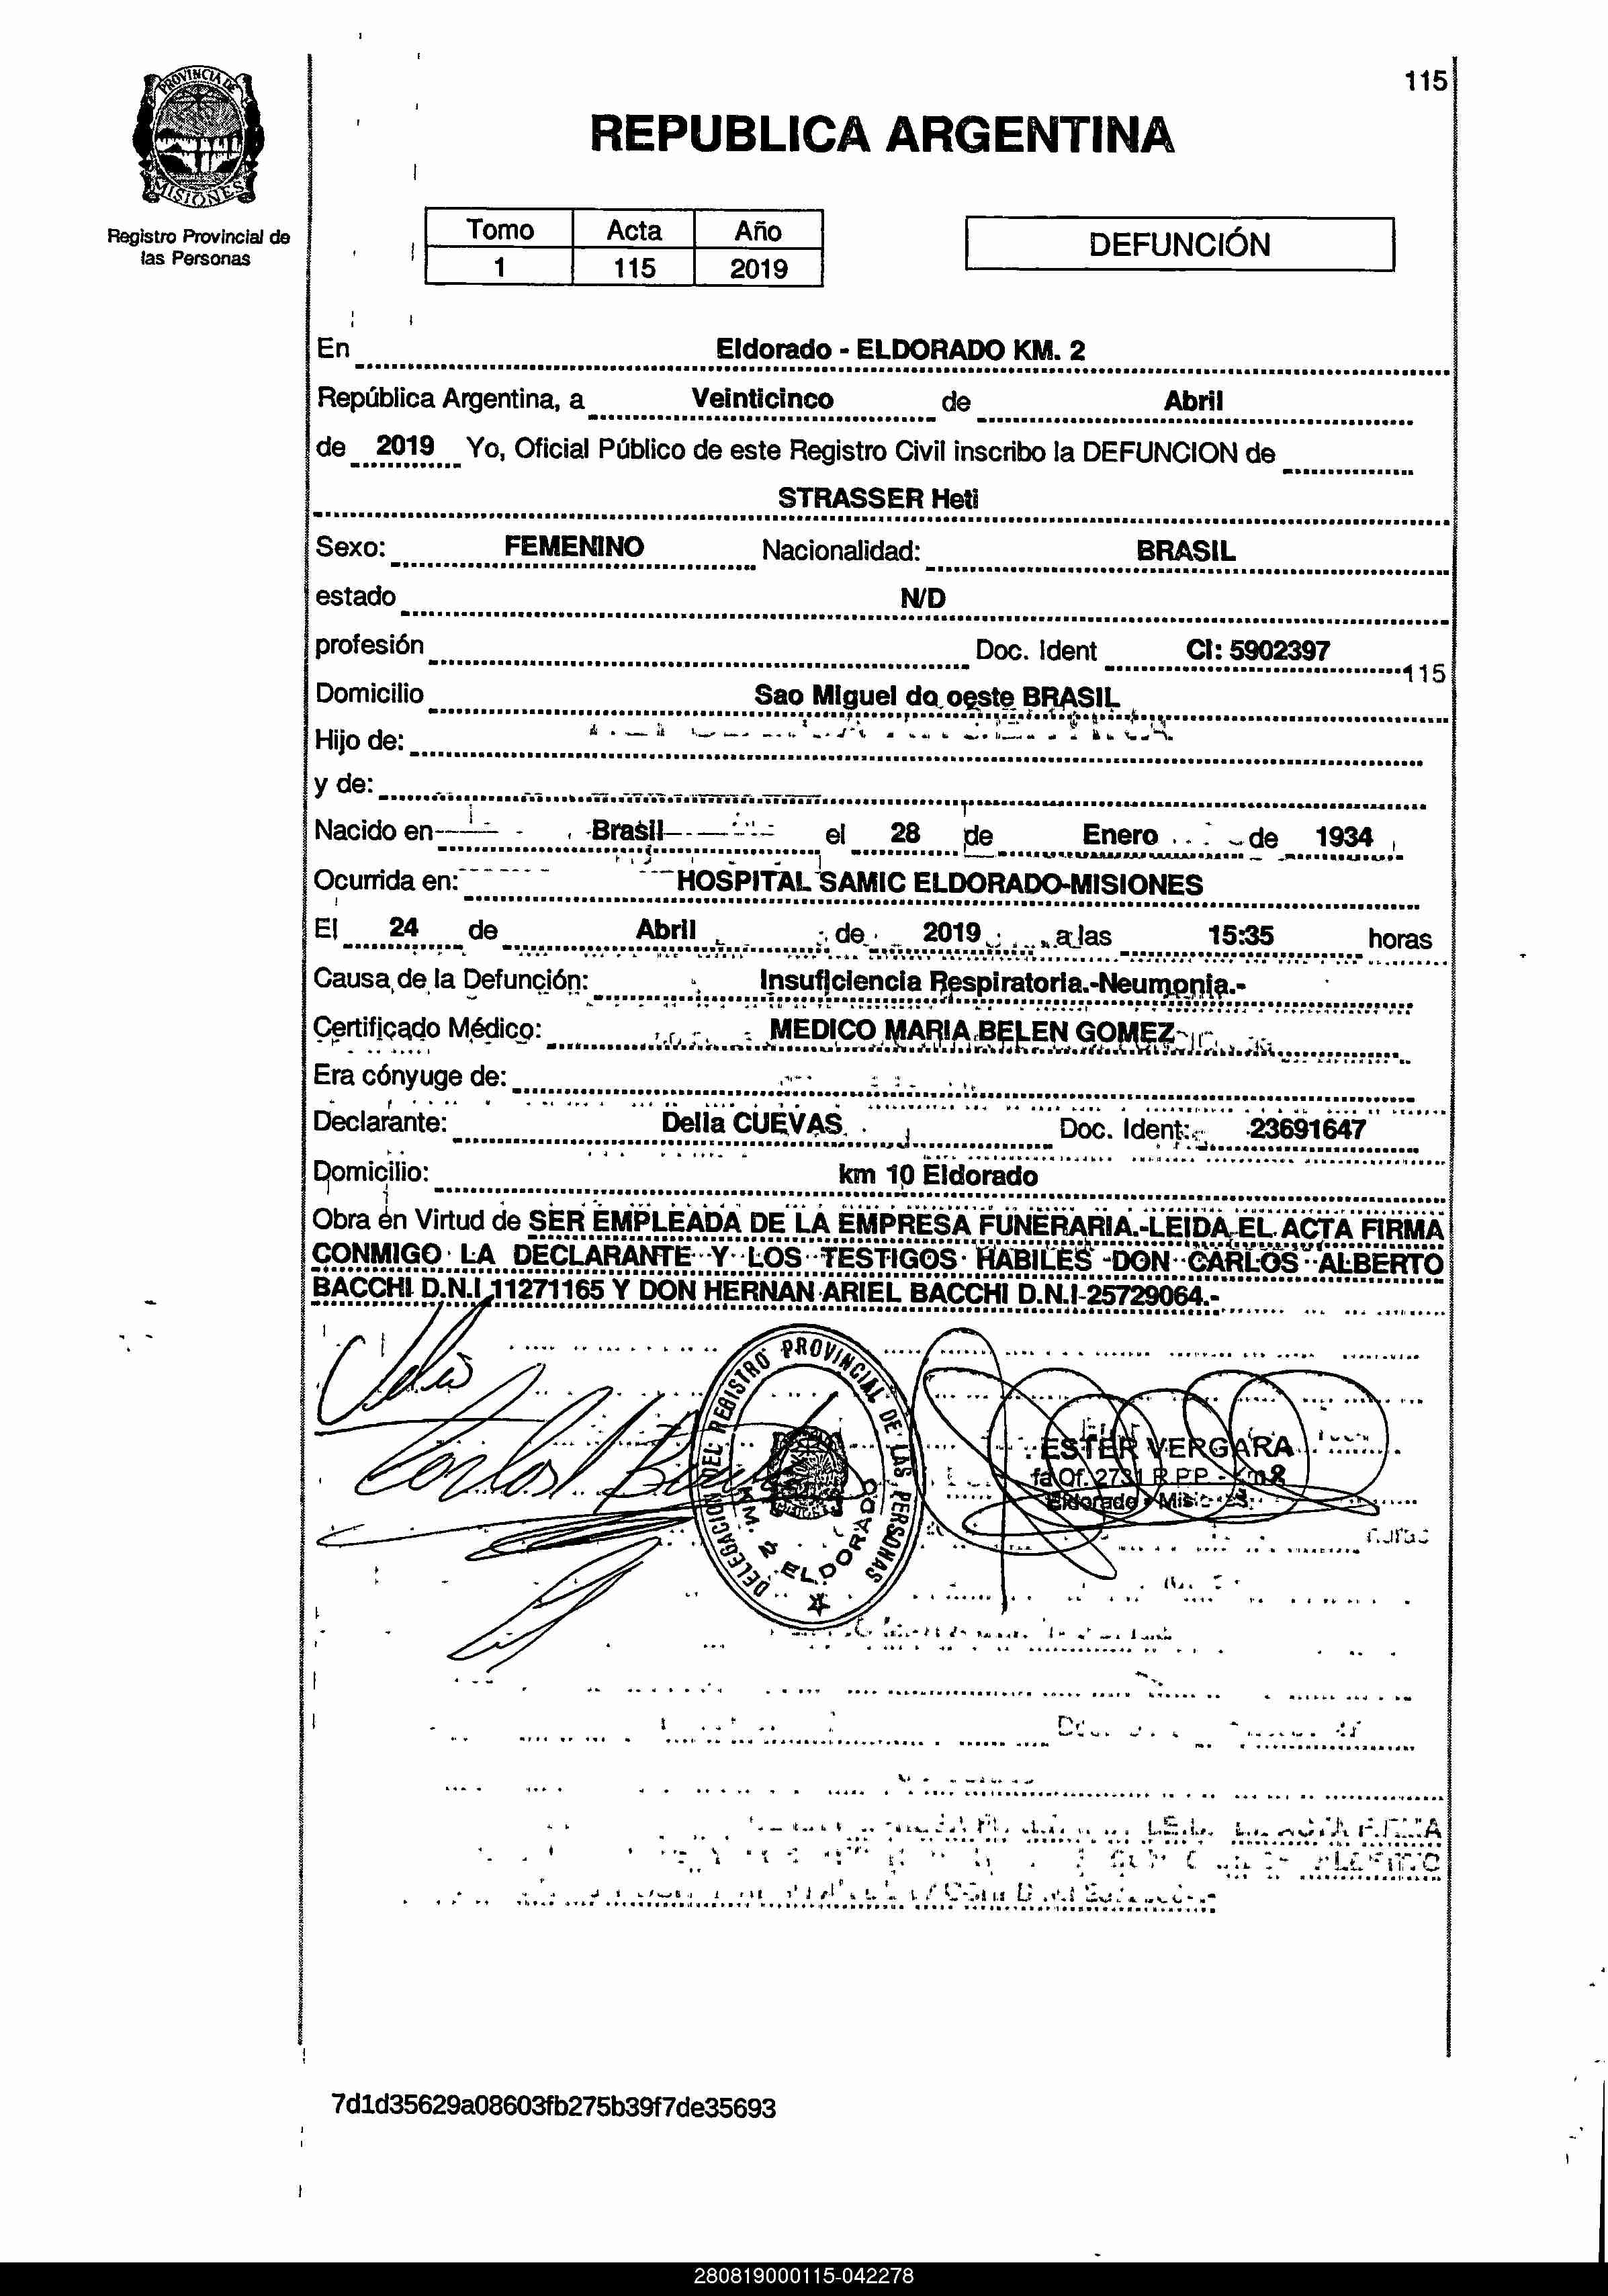 115
PROVINCIA DE
MISIONES
REPUBLICA ARGENTINA
Registro Provincial de
las Personas
Tomo Acta Año
1 115 2019
DEFUNCIÓN
En Eldorado - ELDORADO KM. 2
República Argentina, a Veinticinco de Abril
de 2019 Yo, Oficial Público de este Registro Civil inscribo la DEFUNCION de
STRASSER Heti
Sexo: FEMENINO Nacionalidad: BRASIL
estado N/D
profesión Doc. Ident CI: 5902397
115
Domicilio Sao Miguel do oeste BRASIL
Hijo de:
y de:
Nacido en Brasil el 28 de Enero de 1934
Ocurrida en: HOSPITAL SAMIC ELDORADO-MISIONES
El 24 de Abril de 2019 a las 15:35 horas
Causa de la Defunción: Insuficiencia Respiratoria.-Neumonia.-
Certificado Médico: MEDICO MARIA BELEN GOMEZ
Era cónyuge de:
Declarante: Delia CUEVAS Doc. Ident: 23691647
Domicilio: km 10 Eldorado
Obra en Virtud de SER EMPLEADA DE LA EMPRESA FUNERARIA.-LEIDA EL ACTA FIRMA
CONMIGO LA DECLARANTE Y LOS TESTIGOS HABILES DON CARLOS ALBERTO
BACCHI D.N.I 11271165 Y DON HERNAN ARIEL BACCHI D.N.I-25729064.-
DELEGACION DEL REGISTRO PROVINCIAL DE LAS PERSONAS
KM. 2 ELDORADO
ESTER VERGARA
Of. 2731 R.P.P. - Km 2
Eldorado - Misiones
7d1d35629a08603fb275b39f7de35693
280819000115-042278